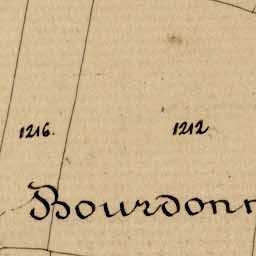 1216.
1212
Bourdonn